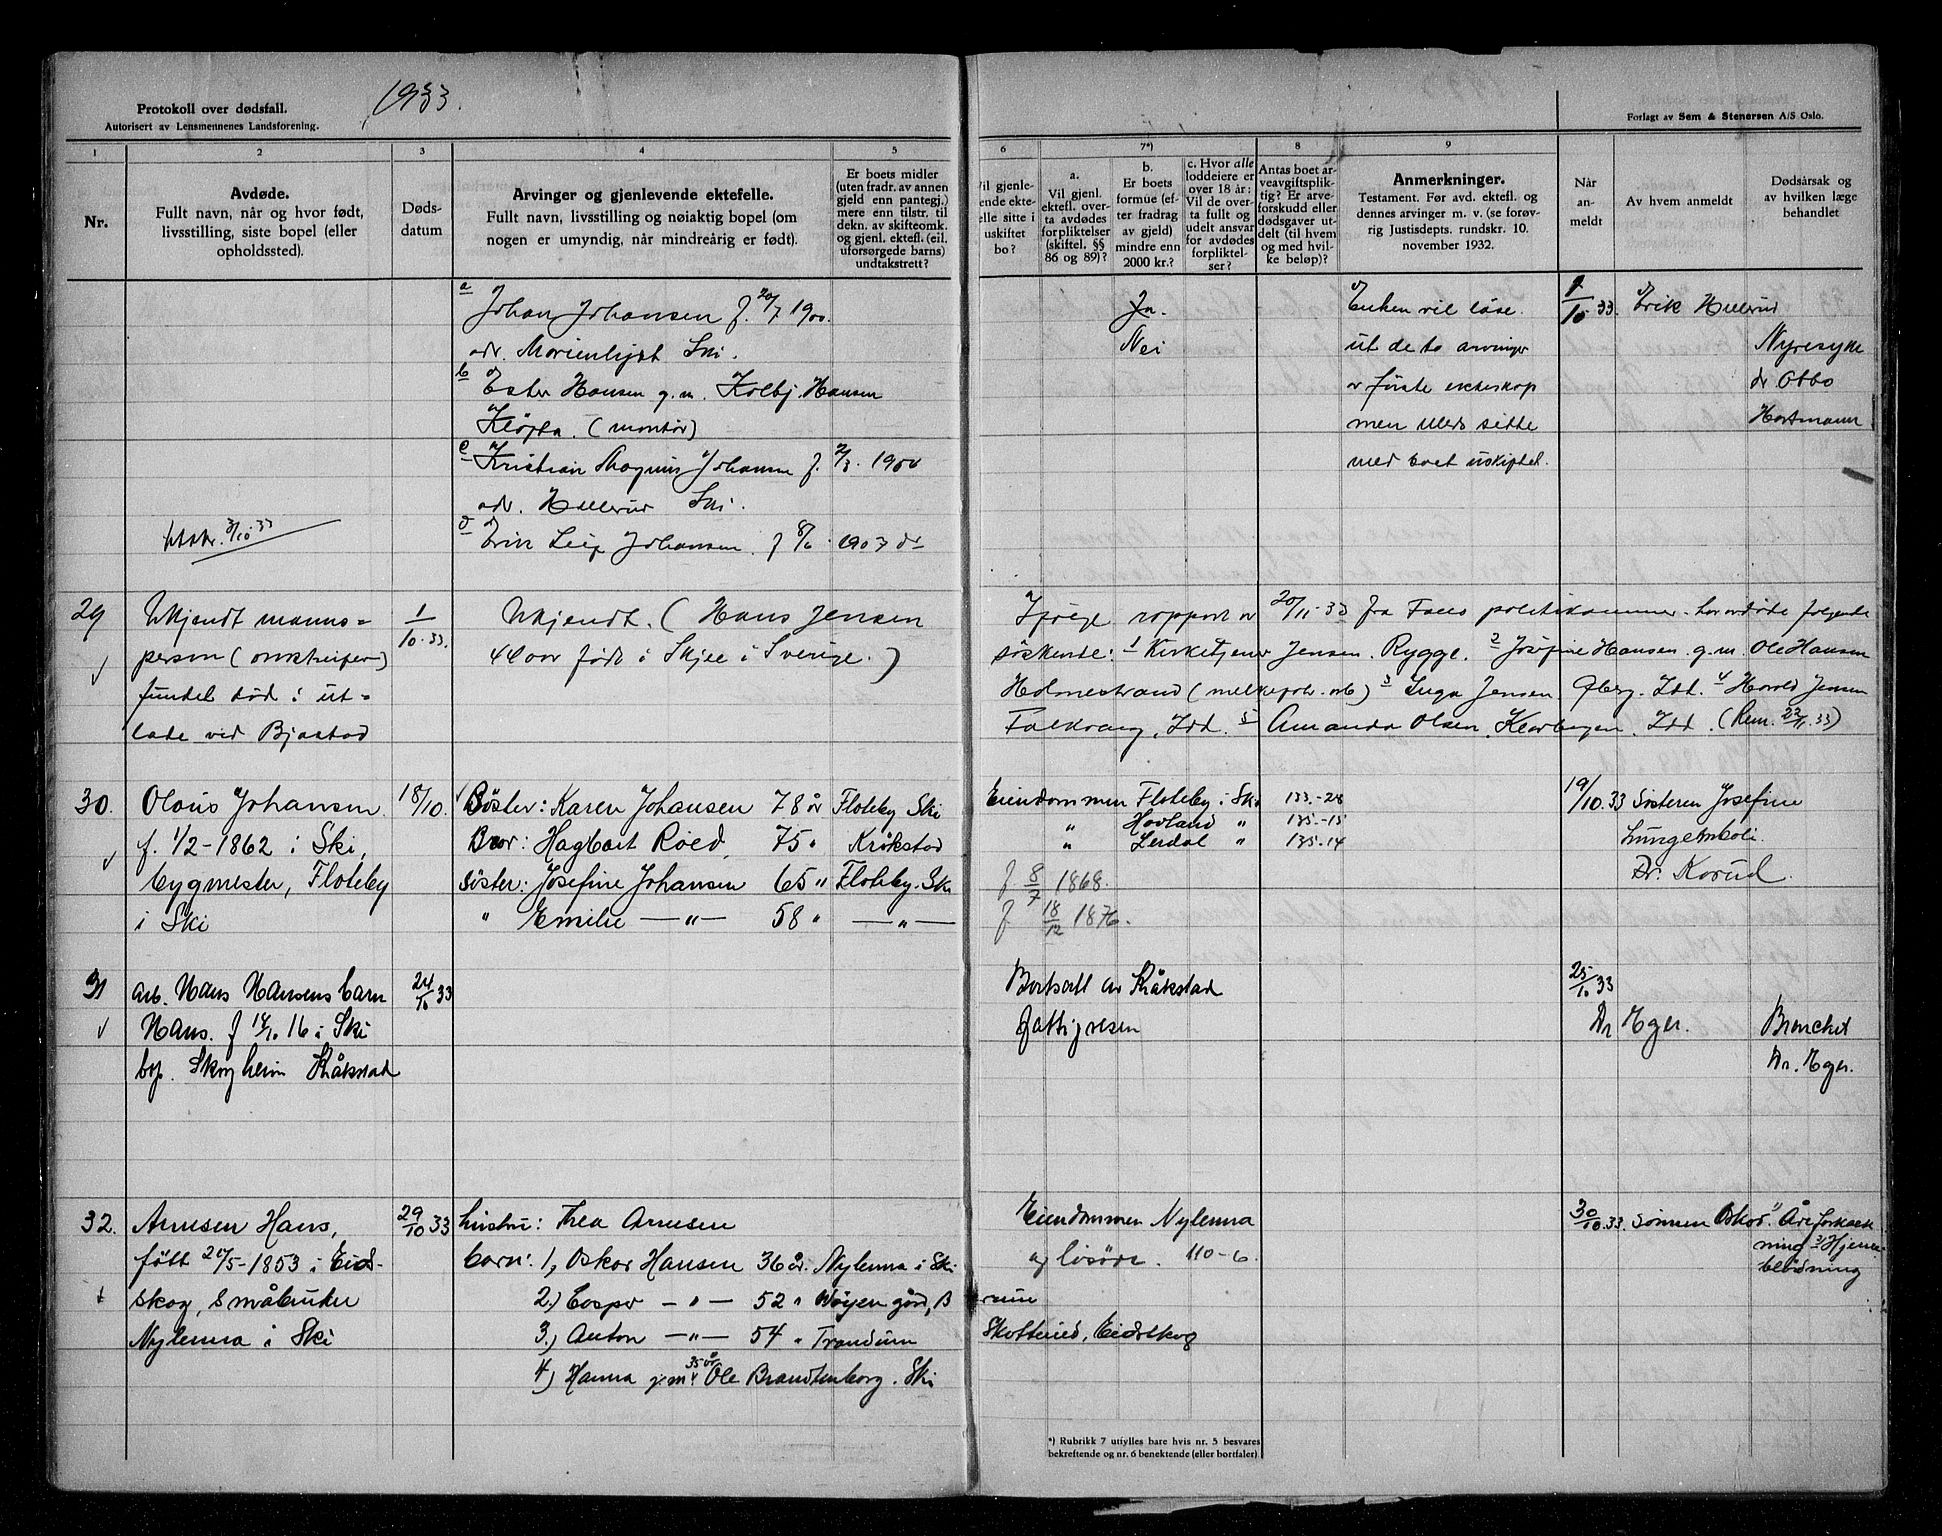 Protokoll over dødsfall.
1933.
Autorisert av Lensmennenes Landsforening.
Forlagt av Sem & Stenersen A/S Oslo.
1 2 3 4 5 6 7*) 8 9
Nr.
Avdøde.
Fullt navn, når og hvor født,
livsstilling, siste bopel (eller
opholdssted).
Døds-
datum
Arvinger og gjenlevende ektefelle.
Fullt navn, livsstilling og nøiaktig bopel (om
nogen er umyndig, når mindreårig er født).
Er boets midler
(uten fradr. av annen
gjeld enn pantegj.)
mere enn tilstr. til
dekn. av skifteomk.
og gjenl. ektefl. (eil.
uforsørgede barns)
undtakstrett?
Vil gjenle-
ende ekte-
elle sitte i
uskiftet
bo?
a.
Vil gjenl.
ektefl. over-
ta avdødes
forpliktelser
(skiftel. §§
86 og 89)?
b.
Er boets
formue (ef-
ter fradrag
av gjeld)
mindre enn
2000 kr.?
c. Hvor alle
loddeiere er
over 18 år:
Vil de over-
ta fullt og
udelt ansvar
for avdødes
forpliktel-
ser?
Antas boet ar-
veavgiftsplik-
tig? Er arve-
forskudd eller
dødsgaver ut-
delt (til hvem
og med hvil-
ke beløp)?
Anmerkninger.
Testament. Før avd. ektefl. og
dennes arvinger m. v. (se forøv-
rig Justisdepts. rundskr. 10.
november 1932.
Når
an-
meldt
Av hvem anmeldt
Dødsårsak og
av hvilken læge
behandlet
a Johan Johansen f. 20/7 1900.
adr. Ski.
b Ester Hansen g.m. Kolbj. Hansen
Kløfta. (montør)
c Kristian Magnus Johansen f. 2/3. 1900
adr. Hellerud Ski.
d Erik Leif Johansen. f 8/6. 1907 do
31/10 33
Ja.
Nei
Enken vil løse
ut de to arvinger
av første ekteskap
men ellers sitte
med boet uskiftet.
1/10 33. Erik Hellerud
Nyresyke
dr Otto
Hartmann
29 Ukjendt manns-
person (omstreifer)
fundet død i ut-
lade ved Bjastad
1/10.33.
Ukjendt. (Hans Jensen
44 aar født i Skjee i Sverige.)
Ifølge rapport av 20/11-33 fra Foess politikammer har avdøde følgende
søskende: 1 Kirketjener Jensen, Rygge. 2 Josefine Hansen g.m. Ole Hansen
Holmestrand 3 Inga Jensen, Øberg, Idd. 4 Harold Jensen
Idd. 5 Amanda Olsen, Idd. (Rem. 22/11.33)
30. Olaus Johansen
f. 1/2-1862 i Ski,
bygmester, Floteby
i Ski
18/10.
Søster: Karen Johansen 78 år Floteby Ski
Bror: Hagbart Roed, 75 " Kråkstad
Søster: Josefine Johansen 65 " Floteby. Ski
" Emilie —"— 58 " —"—
Eiendommen Floteby i Ski 133.-28
" Hovland " 135.-15
" Lerdal " 135-14
f 8/7 1868.
f 18/12 1876.
19/10.33 Søsteren Josefine
Lungeemboli.
Dr. Korud.
31 arb. Hans Hansens barn
Hans. f 14/10 16 i Ski
bop. Skogheim Kråkstad
24/10 33
Bortsatt av Kråkstad
fattigvesen
25/10 33
Dr Eger.
Bronchit
Dr. Eger.
32. Arnesen Hans,
født 20/5-1853 i Eid-
skog, Småbruker
Nylenna i Ski
29/10 33
hustru: Thea Arnesen
barn: 1, Oskar Hansen 36 år. Nylenna i Ski
2.) Casper —"— 52 " Wøyen gård, B
rum
3.) Anton —"— 54 " Trandum
Skotterud, Eidskog
4) Hanna 35 år g.m. Ole Brandtenborg. Ski
Eiendommen Nylenna
og løsøre. 110-6.
30/10.33. sønnen Oskar. 1) Åreforkalk-
ning 2) Hjerne-
blødning
*) Rubrikk 7 utfylles bare hvis nr. 5 besvares
bekreftende og nr. 6 benektende (eller bortfaler)